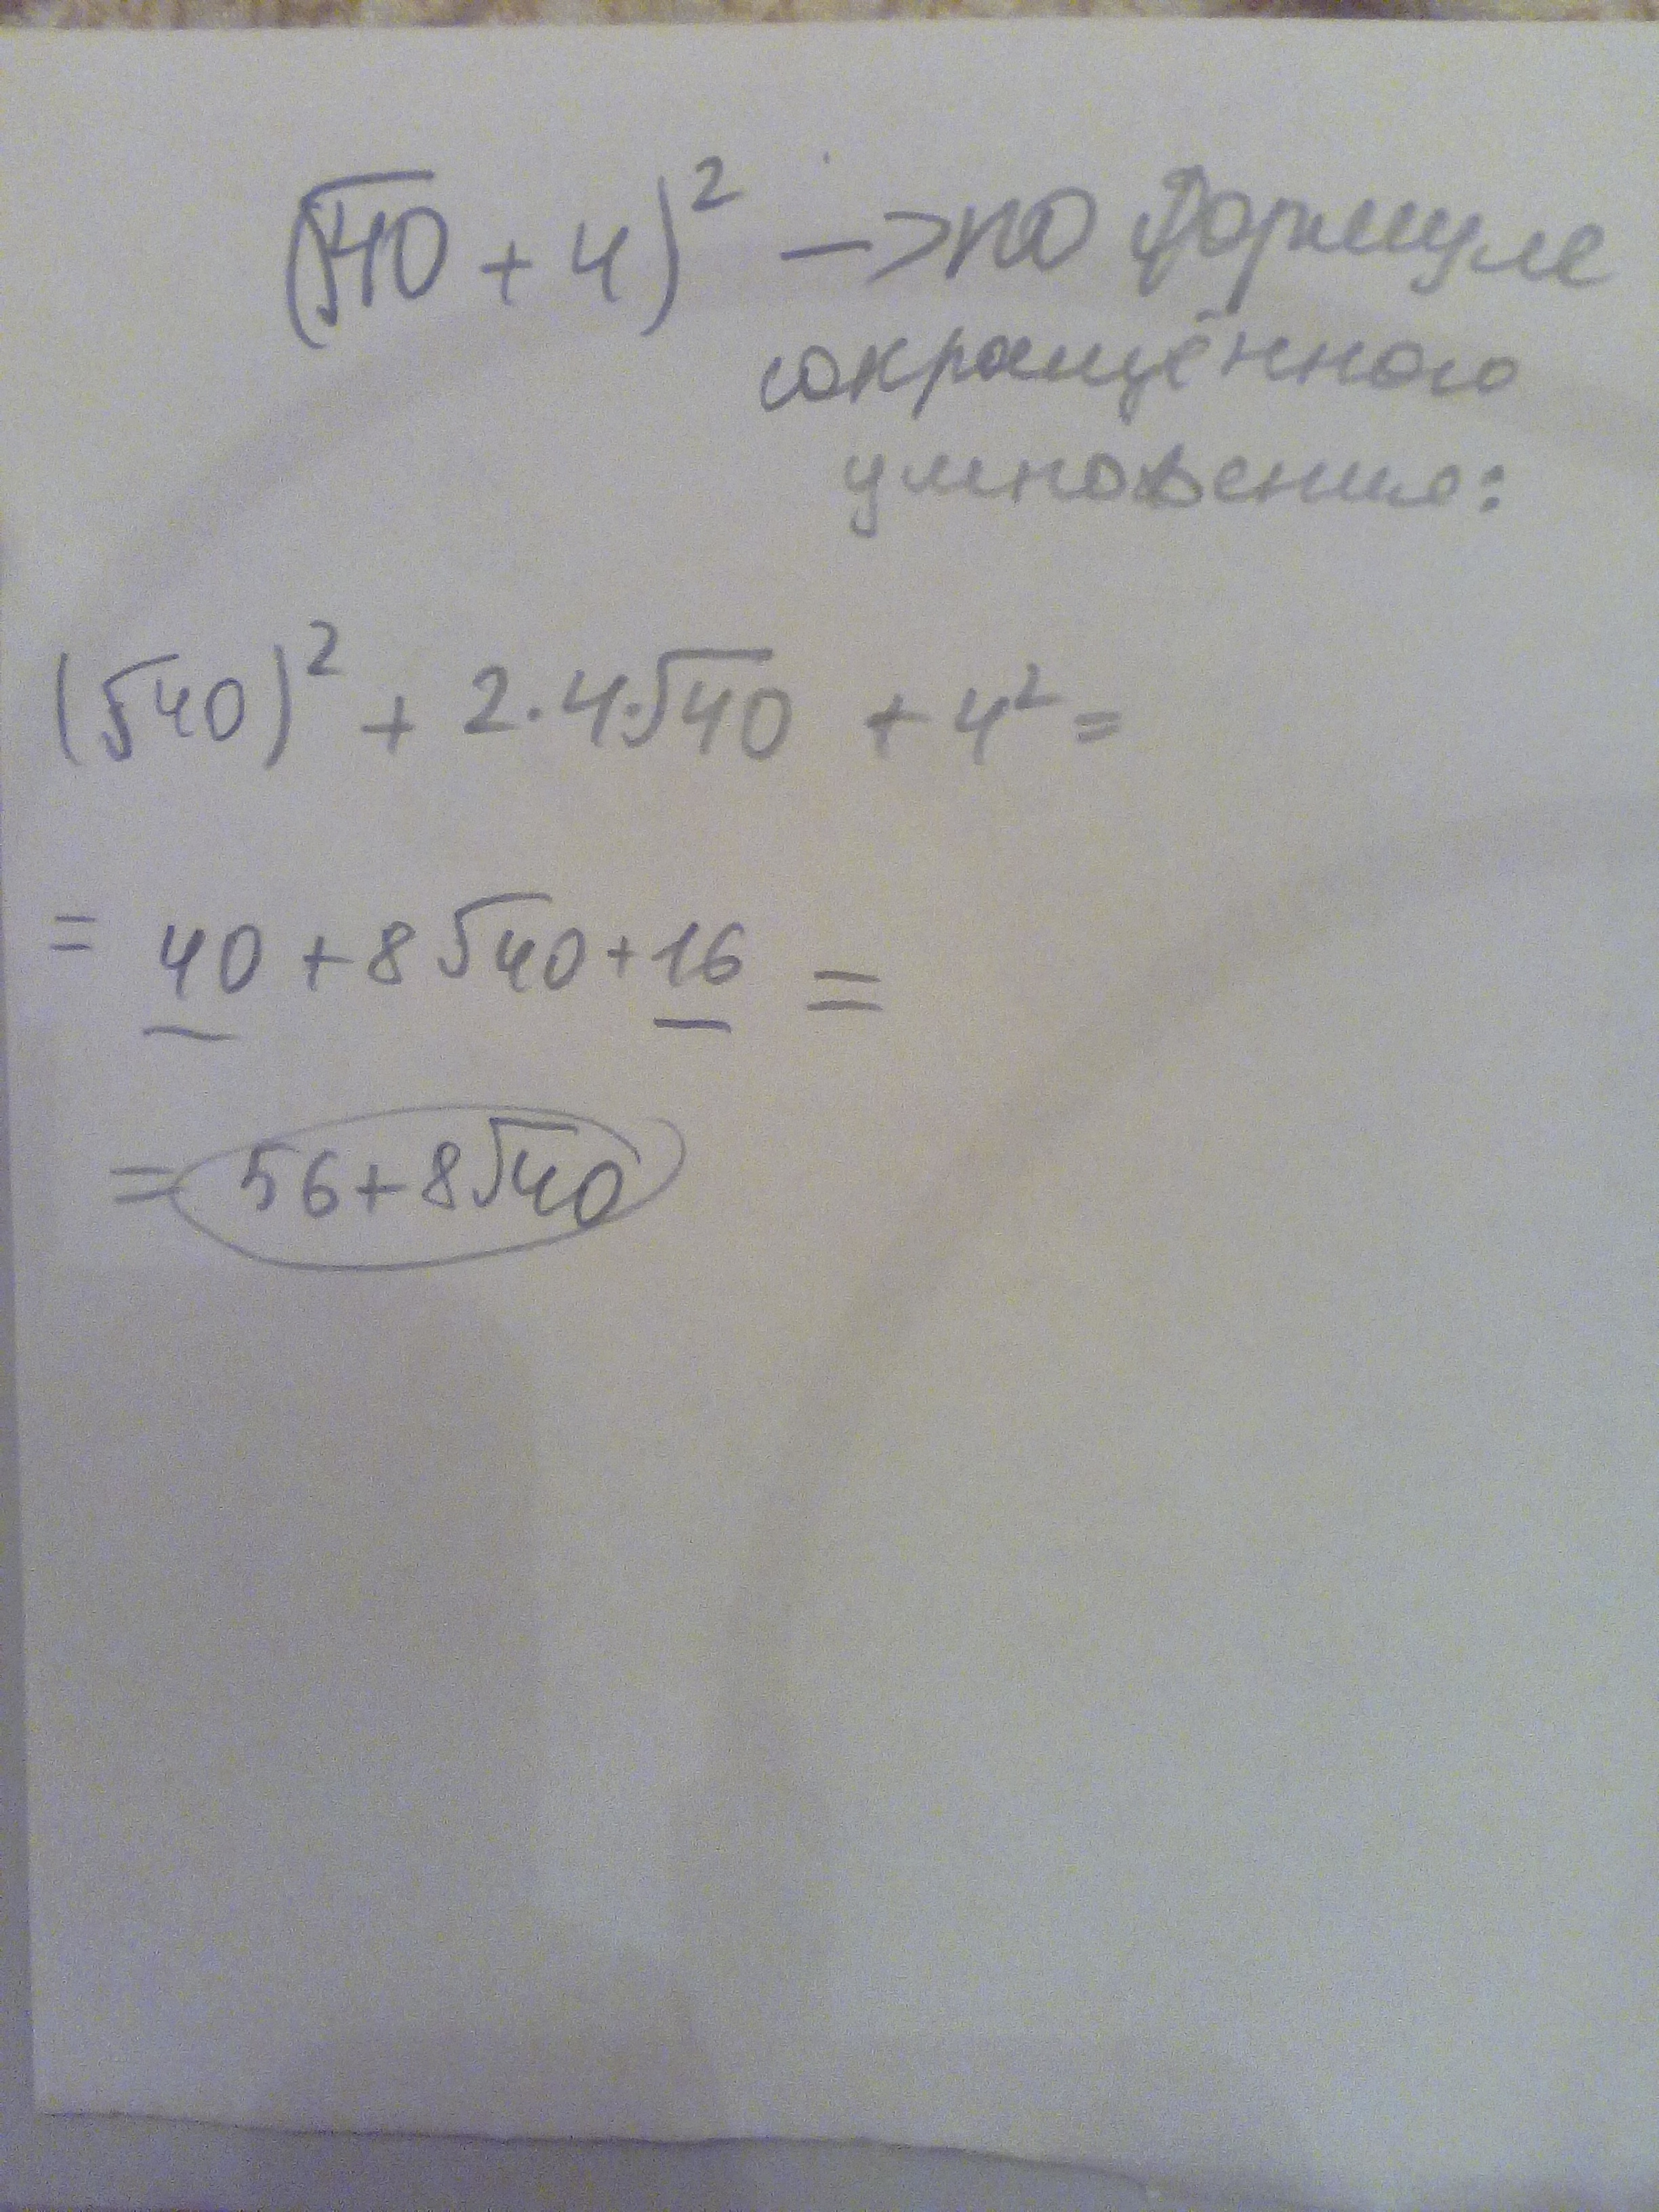 (√40 + 4)² —> по формуле
сокращённого
умножения:
(√40)² + 2·4·√40 + 4² =
= 40 + 8√40 + 16 =
= 56 + 8√40